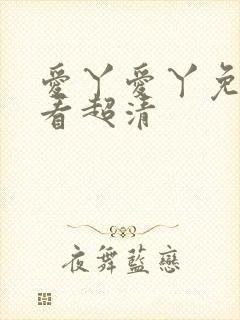 愛丫愛丫免
看超清
夜舞藍戀